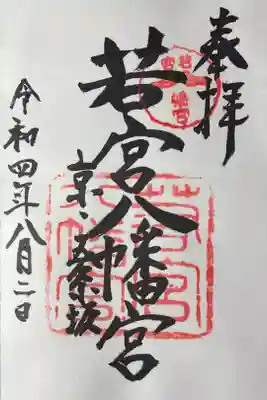 奉拝
若宮八幡宮
京・五条坂
令和四年八月二日
若宮八幡宮